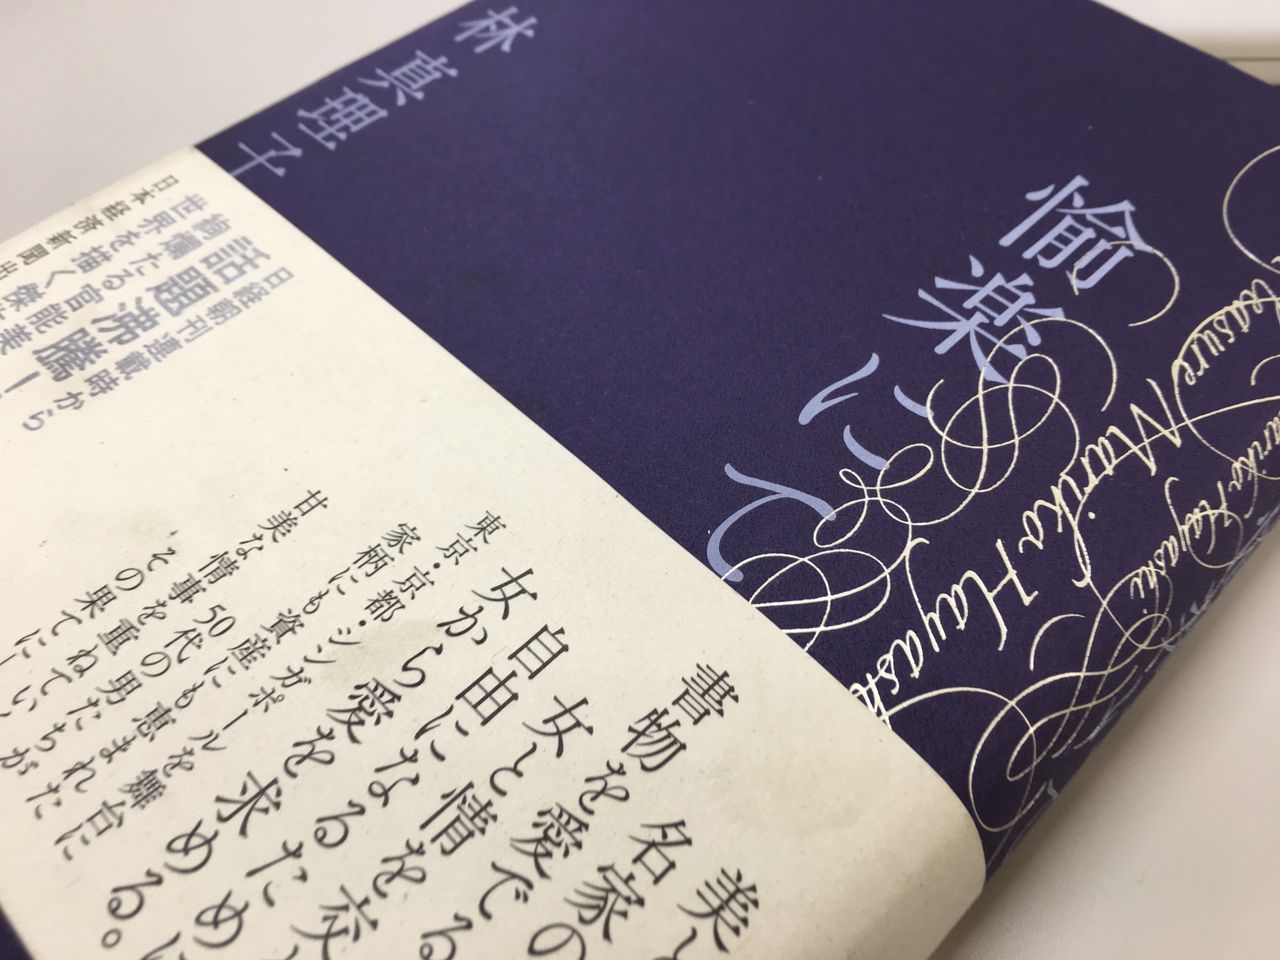 林真理子
愉楽にて
Pleasure Mariko Hayashi
Mariko Hayashi
日経朝刊連載時から
話題沸騰！
絢爛たる官能美
世界を描く傑
日本経済新聞出
美と
書物を名家の
女と愛でる
自由に情を交
女から愛を求める。
東京・京都・シンガポールを舞台に
家柄にも資産にも恵まれた
50代の男たちが
甘美な情事を重ねてい
その果てに